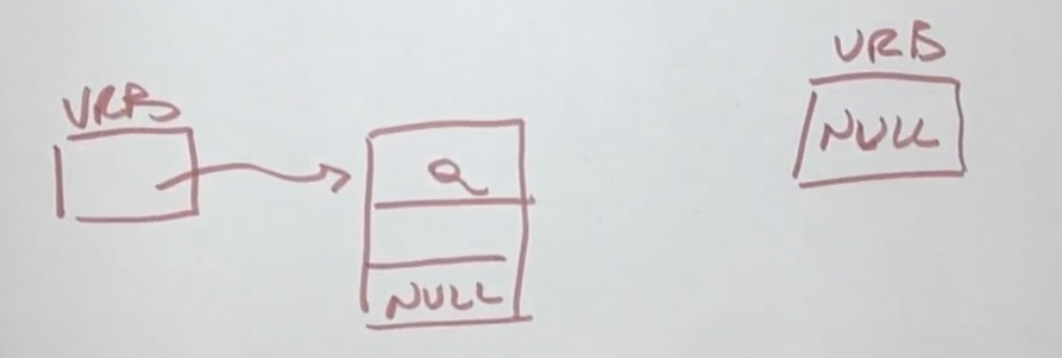 VRB
Q
NULL
VRB
NULL